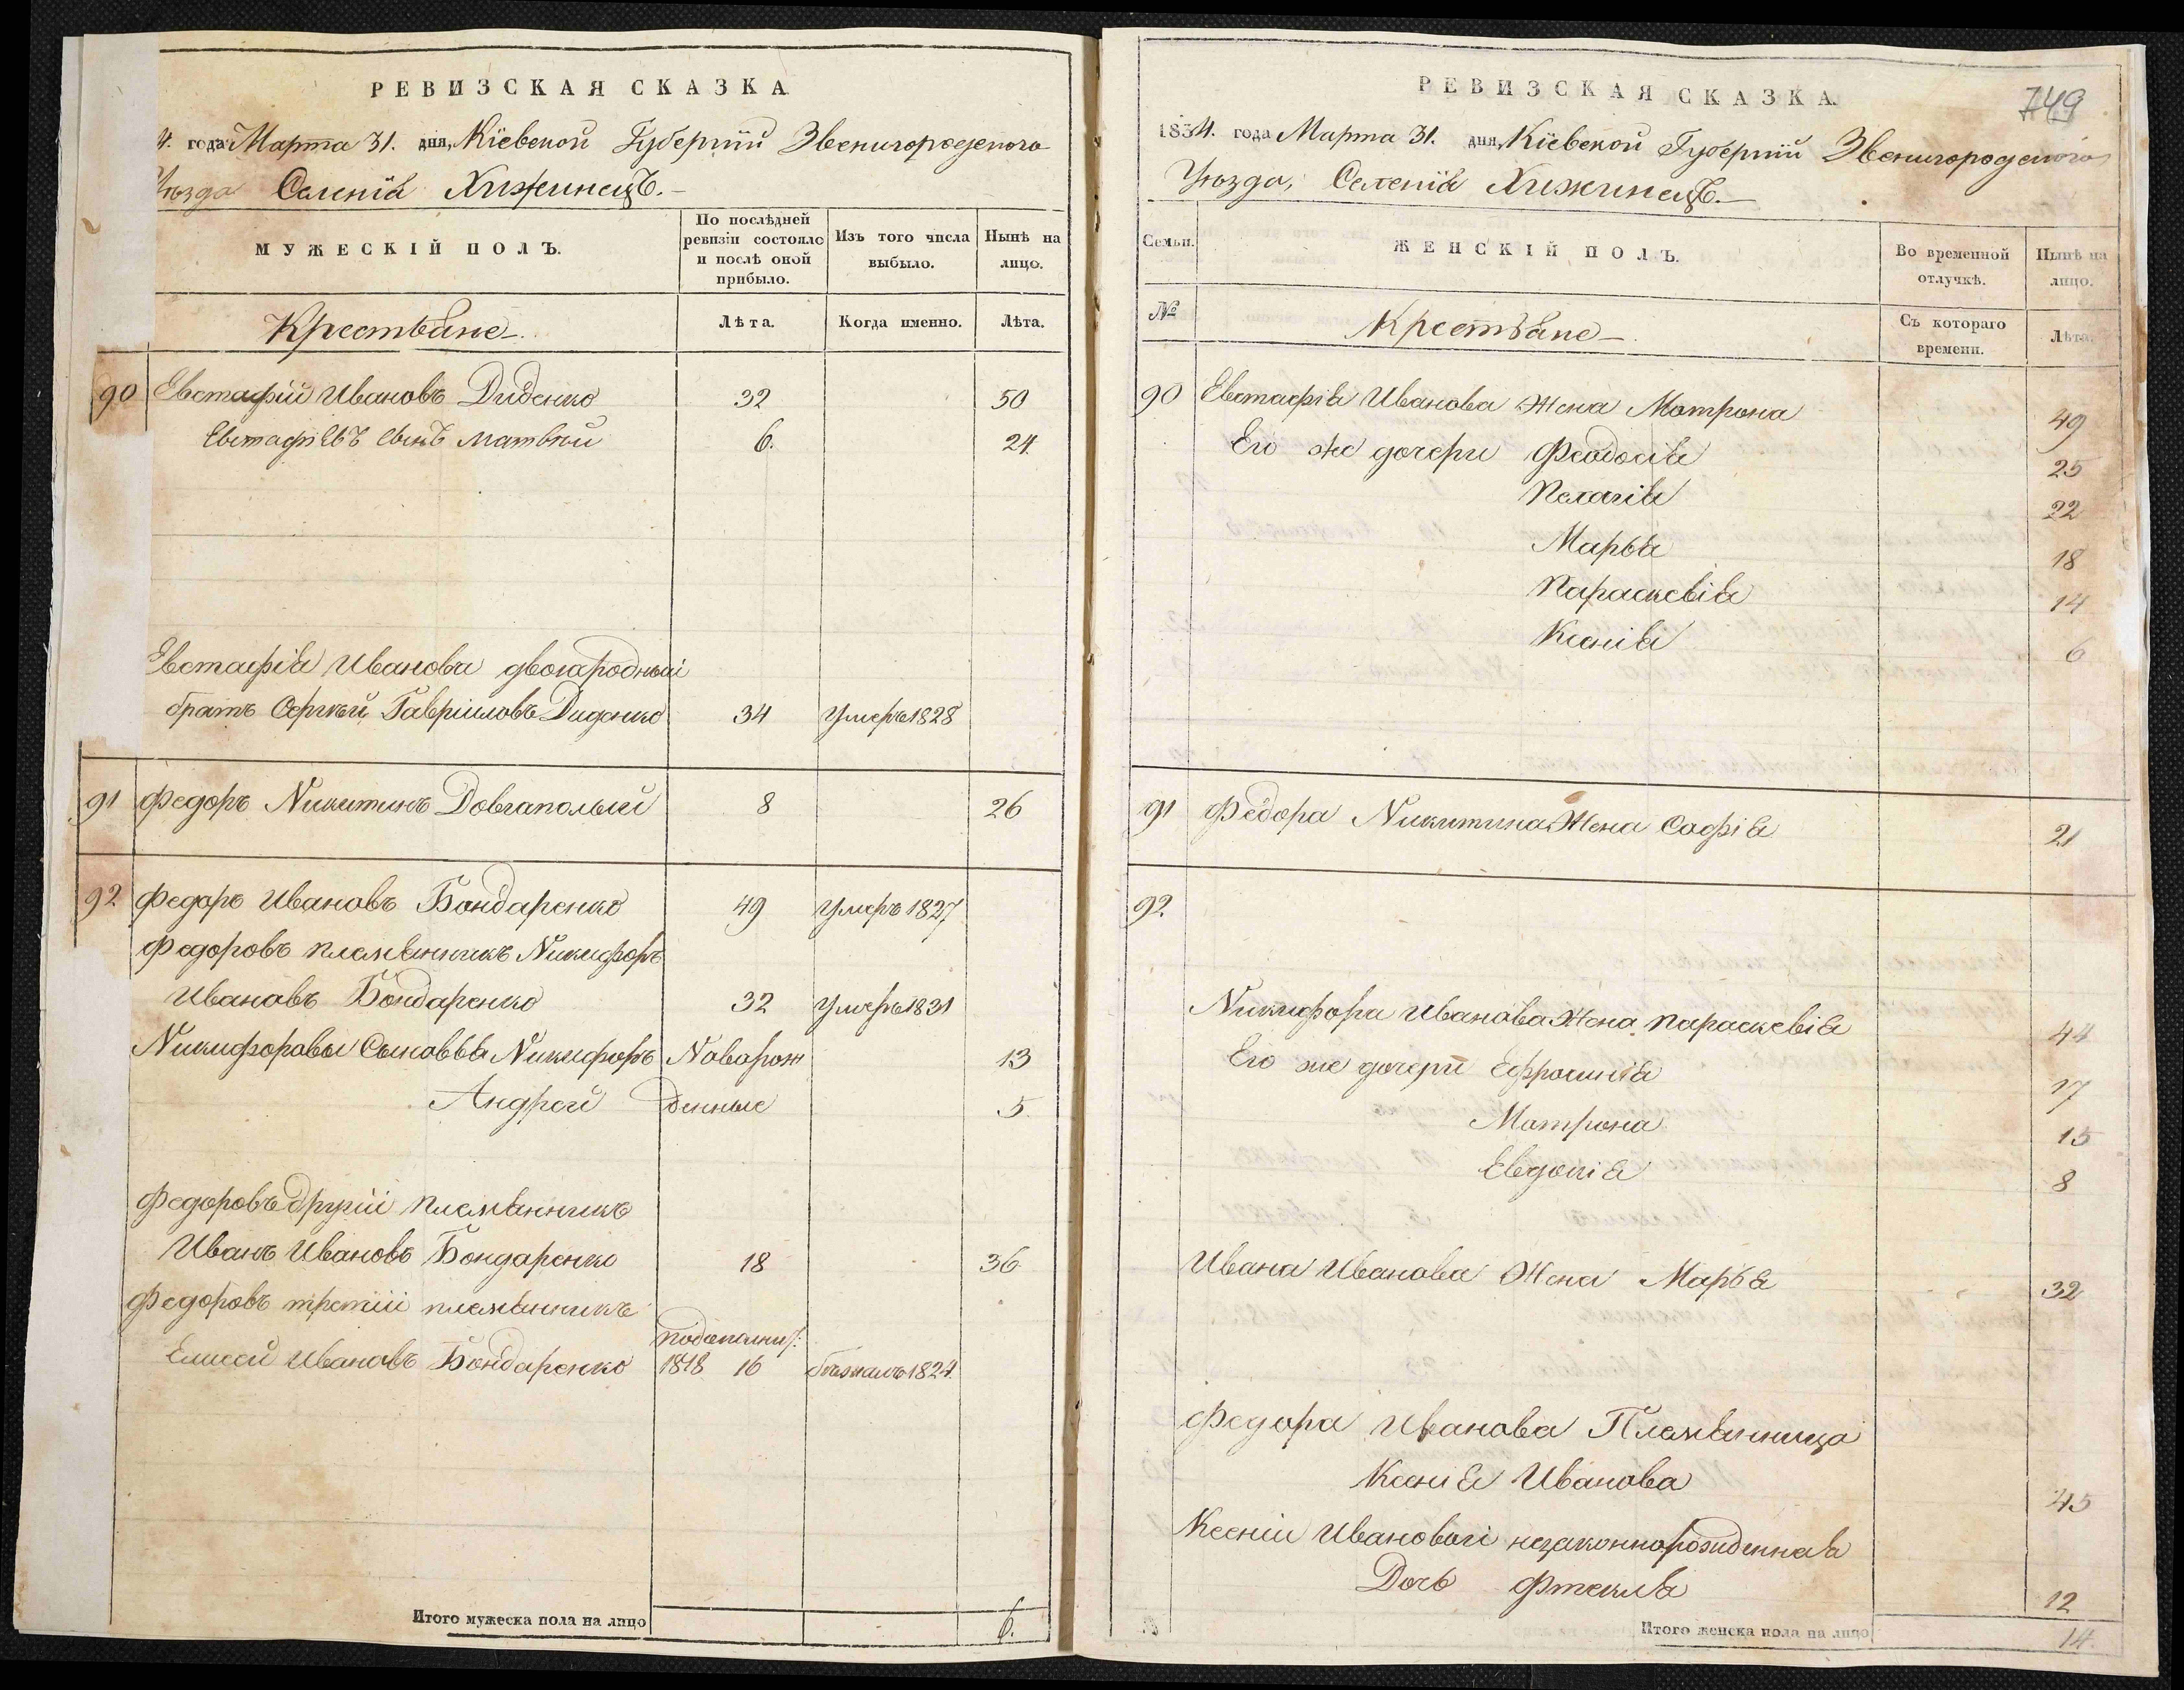 РЕВИЗСКАЯ СКАЗКА
4. года Марта 31. дня, Кіевской Губерніи Звенигородского
Уѣзда Селенія Хижинецъ.
МУЖЕСКІЙ ПОЛЪ.
По послѣдней ревизіи состояло и послѣ оной прибыло.
Изъ того числа выбыло.
Нынѣ на лицо.
Крестьяне
Лѣта.
Когда именно.
Лѣта.
90 Евстафій Ивановъ Диденко 32 50
Евстафіевъ сынъ Матвѣй 6. 24.
Евстафія Иванова двоюродный
братъ Сергѣй Гавріиловъ Диденко 34 Умеръ 1828
91 Федоръ Никитинъ Довгаполый 8 26
92 Федоръ Ивановъ Бондаренко 49 Умеръ 1827
Федоровъ племянникъ Никифоръ
Ивановъ Бондаренко 32 Умеръ 1831
Никифоровы Сыновья Никифоръ Новорож 13
Андрей денные 5.
Федоровъ другій племянникъ
Иванъ Ивановъ Бондаренко 18 36
Федоровъ третій племянникъ
Елисей Ивановъ Бондаренко 1818 16 бѣжалъ 1824.
Итого мужеска пола на лицо 6.
РЕВИЗСКАЯ СКАЗКА.
749
1834. года Марта 31. дня, Кіевской Губерніи Звенигородского
Уѣзда, Селенія Хижинецъ.
Семьи.
ЖЕНСКІЙ ПОЛЪ.
Во временной отлучкѣ.
Нынѣ на лицо.
№
Крестьяне
Съ котораго времени.
Лѣта.
90 Евстафія Иванова Жена Матрона 49
Его же дочери Феодосія 25
Пелагія 22
Марья 18
Параскевія 14
Ксенія 6
91 Федора Никитина Жена Софія 21
92.
Никифора Иванова Жена Параскевія 44
Его же дочери Ефросинія 17
Матрона 15
Евдокія 8
Ивана Иванова Жена Марья 32
Федора Иванова Племянница
Ксенія Иванова 45
Ксеніи Ивановой незаконнорожденная
Дочь Фтекля 12
Итого женска пола на лицо 14.